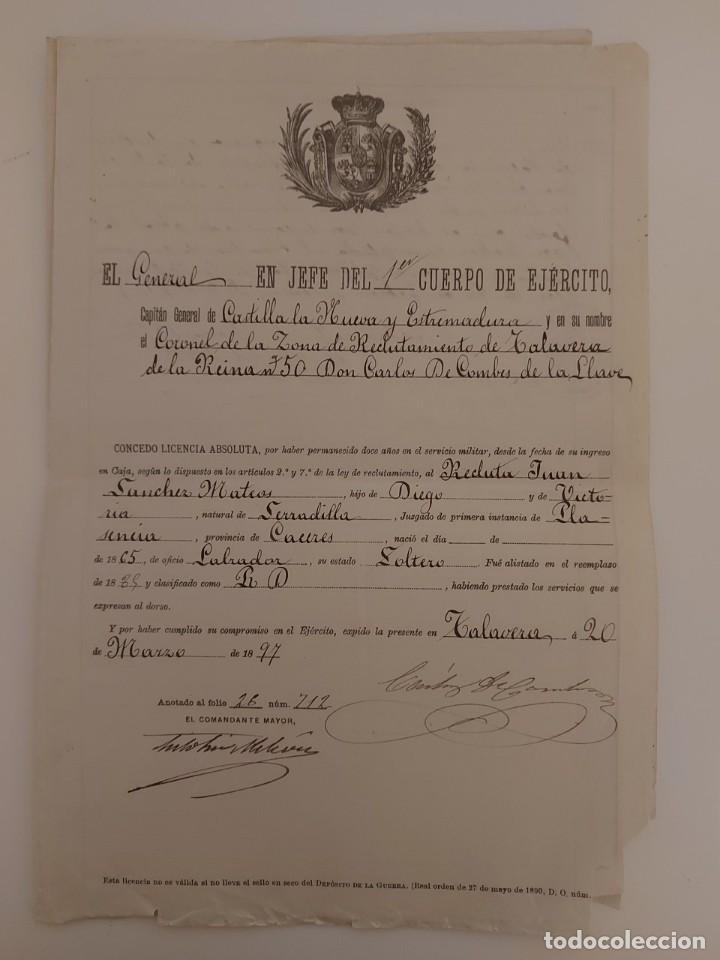 EL General EN JEFE DEL 1er CUERPO DE EJÉRCITO,
Capitán General de Castilla la Nueva y Estremadura y en su nombre
el Coronel de la Zona de Reclutamiento de Talavera
de la Reina nº 50 Don Carlos De Combes de la Llave
CONCEDO LICENCIA ABSOLUTA, por haber permanecido doce años en el servicio militar, desde la fecha de su ingreso
en Caja, según lo dispuesto en los artículos 2.º y 7.º de la ley de reclutamiento, al Recluta Juan
Sanchez Mateos, hijo de Diego y de Victo-
ria, natural de Serradilla, Juzgado de primera instancia de Pla-
sencia, provincia de Caceres, nació el día — de —
de 1865, de oficio Labrador, su estado Soltero. Fué alistado en el reemplazo
de 1885 y clasificado como R D, habiendo prestado los servicios que se
expresan al dorso.
Y por haber cumplido su compromiso en el Ejército, expido la presente en Talavera á 20
de Marzo de 1897
Carlos De Combes
Anotado al folio 26 núm. 712
EL COMANDANTE MAYOR,
Esta licencia no es válida si no lleva el sello en seco del DEPÓSITO DE LA GUERRA. (Real orden de 27 de mayo de 1890, D. O. núm.
todocoleccion.net